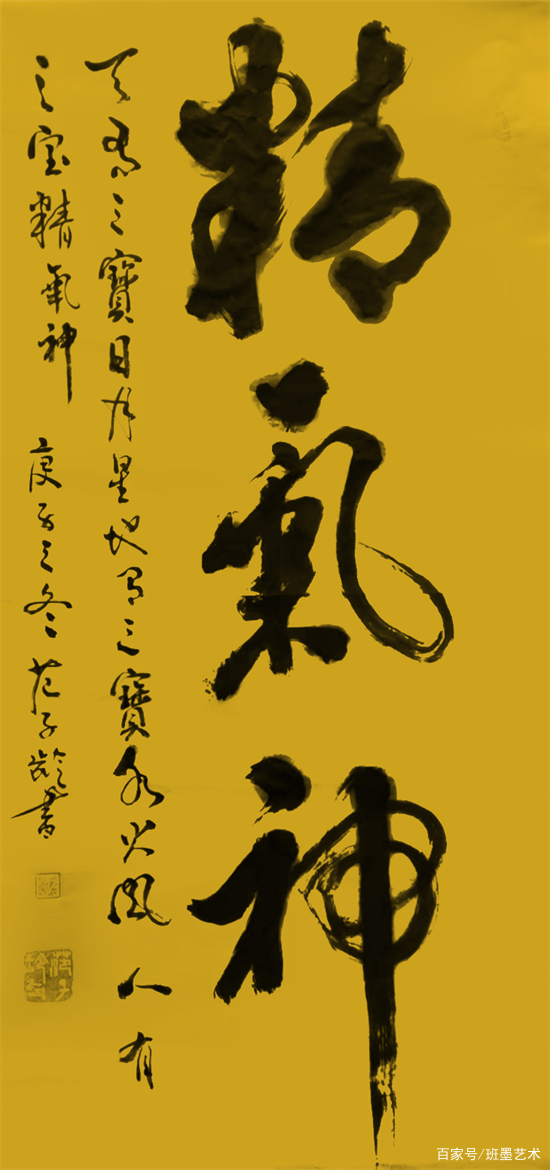 精氣神
天有三寶日月星地有三寶水火風人有
三宝精氣神 庚子之冬 范子齡書
百家号/班墨艺术